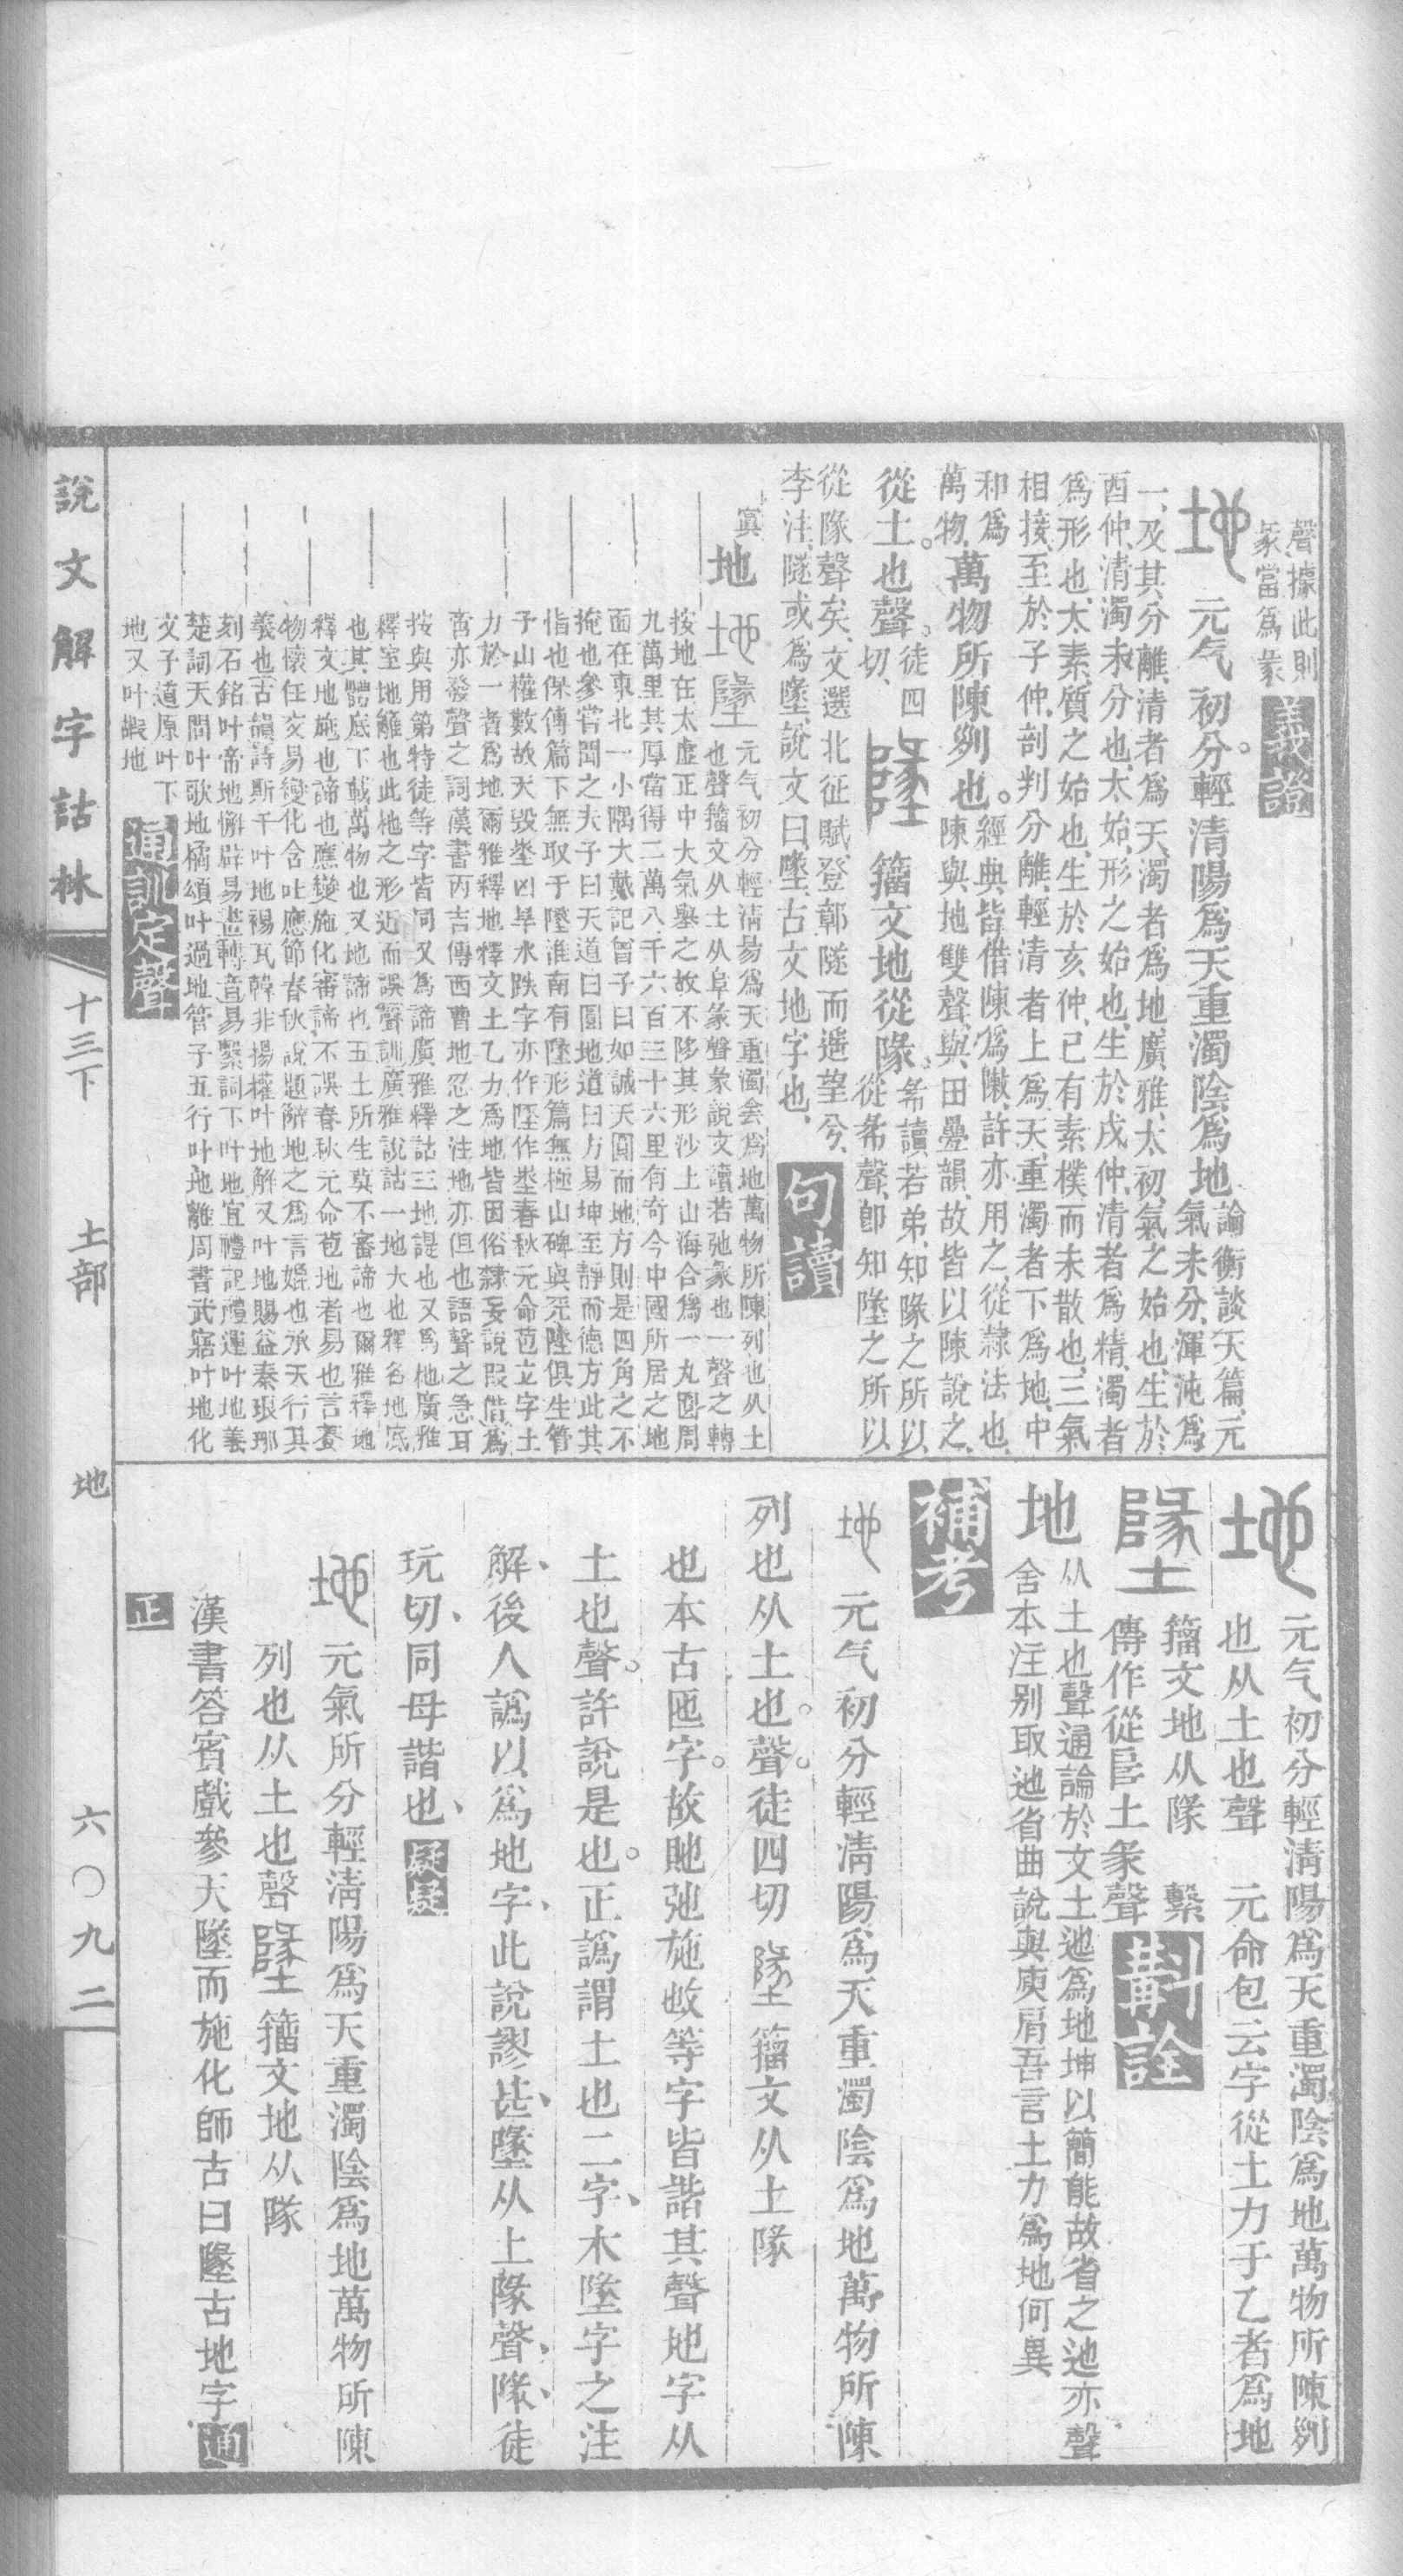 聲據此則
彖當爲彖
義證
地
元气初分輕清陽爲天重濁陰爲地
論衡談天篇元
氣未分渾沌爲
一及其分離清者爲天濁者爲地廣雅太初氣之始也生於
酉仲清濁未分也太始形之始也生於戌仲清者爲精濁者
爲形也太素質之始也生於亥仲已有素樸而未散也三氣
相接至於子仲剖判分離輕清者上爲天重濁者下爲地中
和爲
萬物
萬物所陳𠛱也
經典皆借陳爲敶許亦用之從隸法也
陳與地雙聲與田疊韻故皆以陳說之
從土也聲
徒四
切
墬
籀文地從隊
㣇讀若弟知隊之所以
從㣇聲卽知墬之所以
從隊聲矣文選北征賦登鄣隧而遥望兮
李注隧或爲墬說文曰墬古文地字也
句讀
地
地墬
元气初分輕清昜爲天重濁侌爲地萬物所陳列也从土
也聲籀文从土从阜彖聲彖說文讀若弛彖也一聲之轉
按地在太虛正中大氣舉之故不陊其形沙土山海合爲一丸圜周
九萬里其厚當得二萬八千六百三十六里有奇今中國所居之地
面在東北一小隅大戴記曾子曰如誠天圓而地方則是四角之不
掩也參嘗聞之夫子曰天道曰圓地道曰方易坤至靜而德方此其
恉也保傅篇下無取于墬淮南有墬形篇無極山碑與天墬俱生管
子山權數故天毀埊凶旱水泆字亦作坔作埊春秋元命苞立字土
力於一者爲地爾雅釋地釋文土乙力爲地皆因俗隸妄說叚借爲
啻亦發聲之詞漢書丙吉傳西曹地忍之注地亦但也語聲之急耳
按與用第特徒等字皆同又爲諦廣雅釋詁三地諟也又爲杝廣雅
釋室地籬也此杝之形近而誤聲訓廣雅說詁一地大也釋名地底
也其體底下載萬物也又地諦也五土所生莫不審諦也爾雅釋地
釋文地施也諦也應變施化審諦不誤春秋元命苞地者易也言養
物懷任交易變化含吐應節春秋說題辭地之爲言媲也承天行其
義也古韻詩斯干叶地裼瓦韓非揚權叶地解又叶地賜益秦琅邪
刻石銘叶帝地懈辟易畫轉音易繫詞下叶地宜禮記禮運叶地義
楚詞天問叶歌地橘頌叶過地管子五行叶地離周書武寤叶地化
文子道原叶下
地又叶叚地
通訓定聲
地
元气初分輕清陽爲天重濁陰爲地萬物所陳𠛱
也从土也聲 元命包云字從土力于乙者爲地
墬
籀文地从隊 繫
傳作從𨸏土彖聲
斠詮
地
从土也聲通論於文土迆爲地坤以簡能故省之迆亦聲
舍本注别取迆省曲說與庾肩吾言土力爲地何異
補考
地 元气初分輕清陽爲天重濁陰爲地萬物所陳
列也从土也聲徒四切 墬籀文从土隊
也本古匜字故貤弛施岐等字皆諧其聲地字从
土也聲許說是也正譌謂土也二字木墬字之注
解後人譌以爲地字此說謬甚墬从土隊聲隊徒
玩切同母諧也
疑疑
地 元氣所分輕清陽爲天重濁陰爲地萬物所陳
列也从土也聲墬籀文地从隊
漢書答賓戲參天墬而施化師古曰墬古地字通
正
說文解字詁林
十三下
土部
地
六〇九二